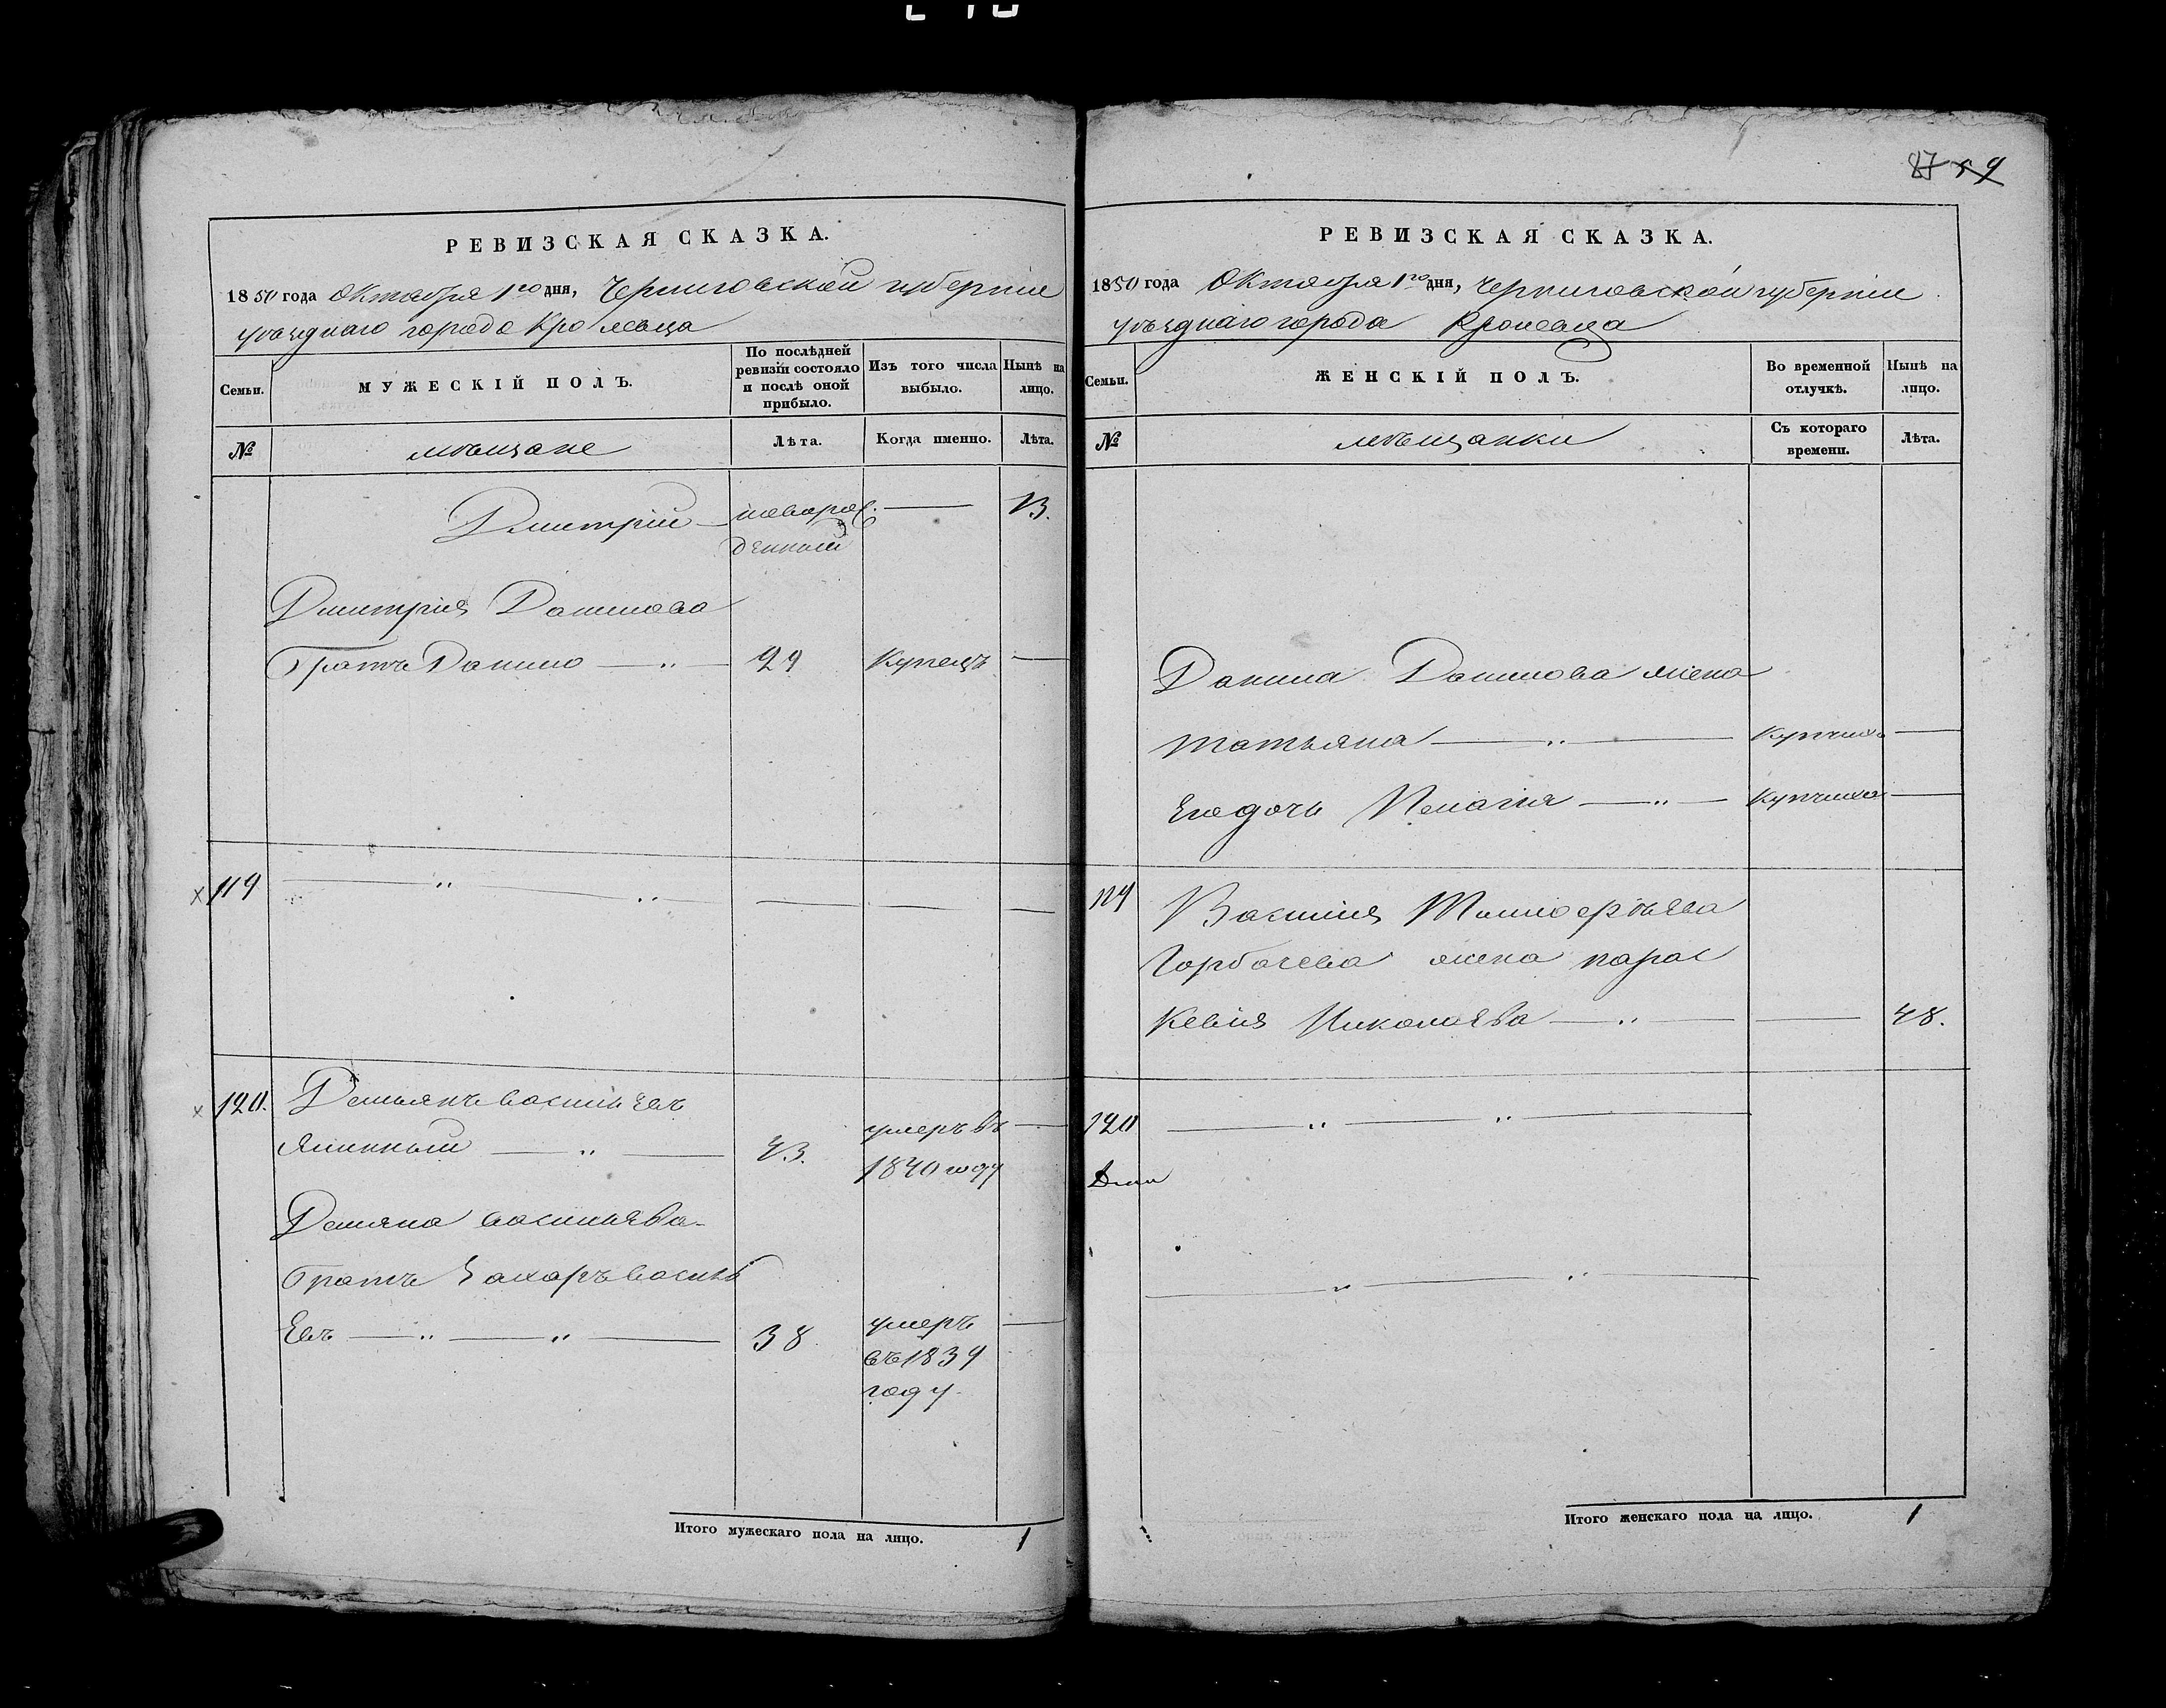 РЕВИЗСКАЯ СКАЗКА.
1850 года Октября 1го дня, Черниговской губернiи
уѣзднаго города Кролевца
Семьи.
МУЖЕСКІЙ ПОЛЪ.
По послѣдней ревизіи состояло и послѣ оной прибыло.
Изъ того числа выбыло.
Нынѣ на лицо.
№
мѣщане
Лѣта.
Когда именно.
Лѣта.
Дмитрiй — новорож — 13.
денный
Дмитрiя Данилова
братъ Данило — " — 29 Купецъ —
119 — " — " — — — —
120. Демьянъ Василь евъ
умеръ въ —
— " — 43.
1840 году
Демяна Васильева
братъ Захаръ Василь
евъ — " — " — 38. умеръ —
въ 1839
году.
Итого мужескаго пола на лицо. 1
87 59
РЕВИЗСКАЯ СКАЗКА.
1850 года Октября 1го дня, Черниговской губернiи
уѣзднаго города Кролевца
Семьи.
ЖЕНСКІЙ ПОЛЪ.
Во временной отлучкѣ.
Нынѣ на лицо.
№
мѣщанки
Съ котораго времени.
Лѣта.
Данила Данилова жена
татьяна — " — Купчиха —
Его дочь Пелагiя — " — Купчиха —
119 Василiя
Горбачева жена парас
кевiя Николаева — " — — 48.
120 — " — " —
— " — " —
Итого женскаго пола на лицо. 1